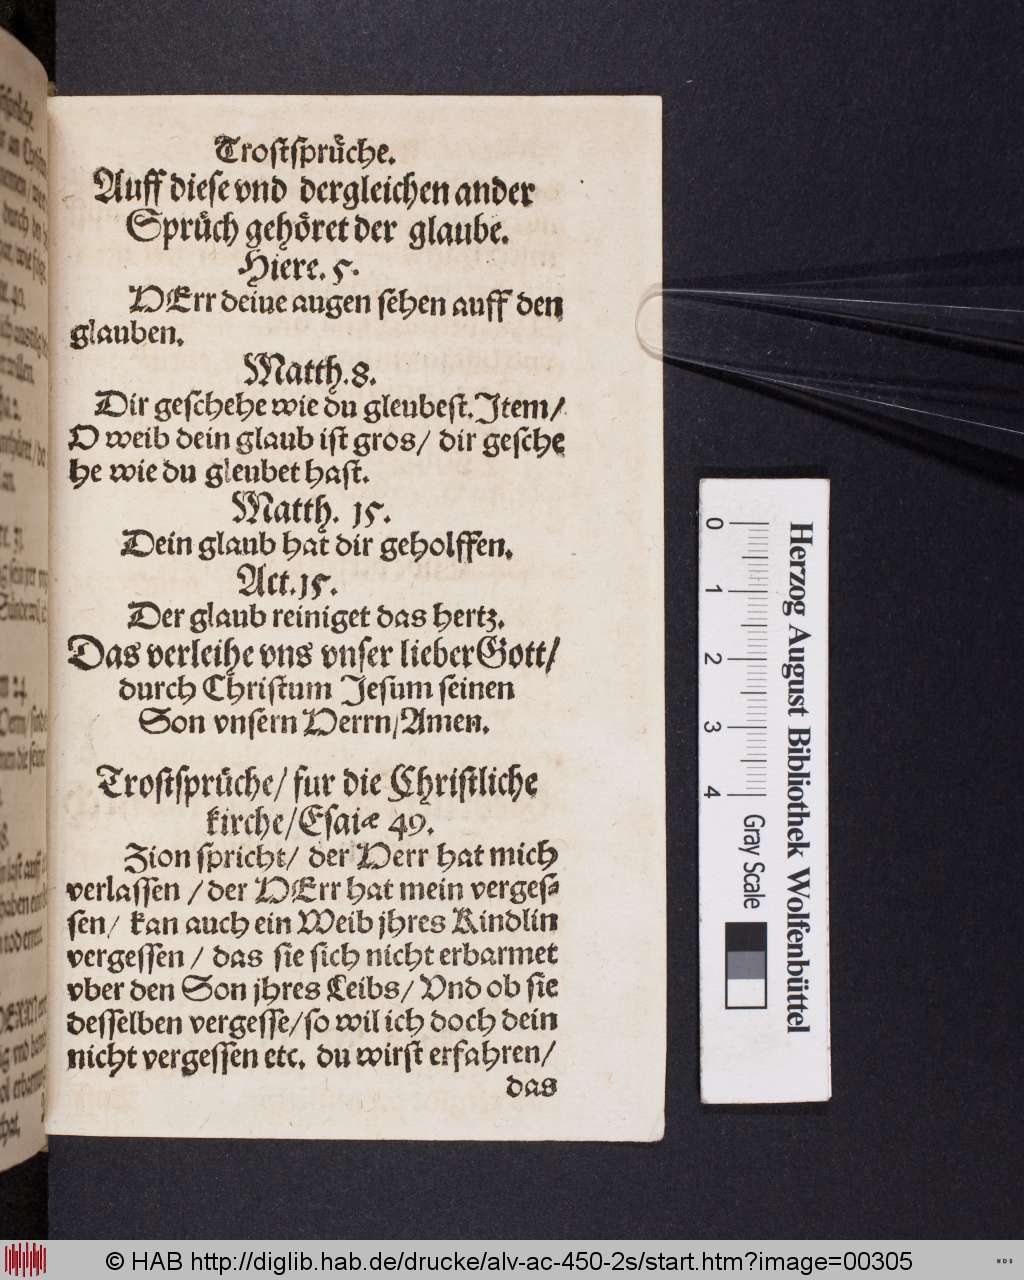 Trostsprüche.
Auff diese vnd dergleichen ander
Sprüch gehöret der glaube.
Hiere. 5.
HErr deine augen sehen auff den
glauben.
Matth. 8.
Dir geschehe wie du gleubest. Item/
O weib dein glaub ist gros/ dir gesche
he wie du gleubet hast.
Matth. 15.
Dein glaub hat dir geholffen.
Act. 15.
Der glaub reiniget das hertz.
Das verleihe vns vnser lieber Gott/
durch Christum Jesum seinen
Son vnsern Herrn/ Amen.
Trostsprüche/ fur die Christliche
kirche/ Esaiæ 49.
Zion spricht/ der Herr hat mich
verlassen / der HErr hat mein verges=
sen/ kan auch ein Weib jhres Kindlin
vergessen / das sie sich nicht erbarmet
vber den Son jhres Leibs/ Vnd ob sie
desselben vergesse/ so wil ich doch dein
nicht vergessen etc. du wirst erfahren/
das
Herzog August Bibliothek Wolfenbüttel
0 1 2 3 4
Gray Scale
© HAB http://diglib.hab.de/drucke/alv-ac-450-2s/start.htm?image=00305